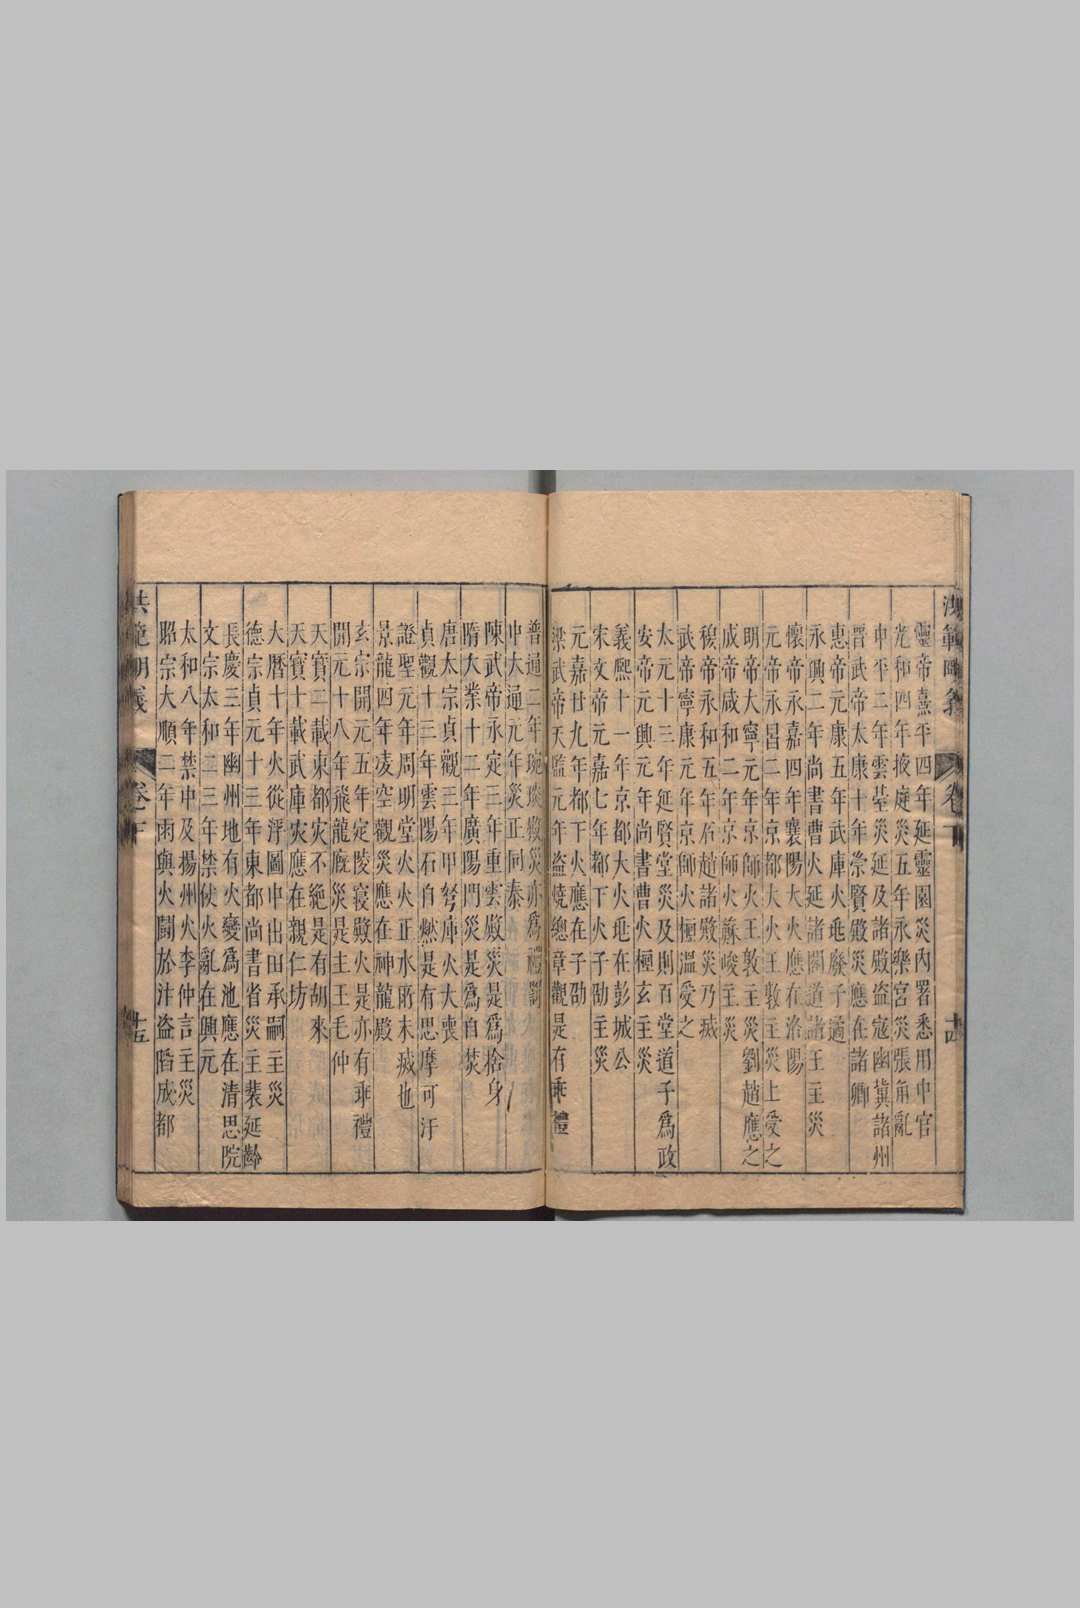 靈帝熹平四年延靈園災內署悉用中官
光和四年掖庭災五年永樂宮災張角亂
中平二年雲臺災延及諸殿盜寇幽冀諸州
晉武帝太康十年崇賢殿災應在諸卿
惠帝元康五年武庫火兆廢子遹
永興二年尚書曹火延諸閣道諸王主災
懷帝永嘉四年襄陽大火應在洛陽
元帝永昌二年京都大火王敦主災上受之
明帝大寧元年京師火王敦主災劉超應之
成帝咸和二年京師火蘇峻主災
穆帝永和五年石趙諸殿災乃滅
武帝寧康元年京師火桓溫受之
太元十三年延賢堂災及則百堂道子為政
安帝元興元年尚書曹火桓玄主災
義熙十一年京都大火兆在彭城公
宋文帝元嘉七年都下火子劭主災
元嘉廿九年都下火應在子劭
梁武帝天監元年盜燒總章觀是有乖禮
普通二年琬琰殿災亦為禮罰
中大通元年災正同泰
陳武帝永定三年重雲殿災是為捨身
隋大業十二年廣陽門災是為自焚
唐太宗貞觀三年甲弩庫火大喪
貞觀十三年雲陽石自燃是有思摩可汙
證聖元年周明堂火火正水胏未滅也
景龍四年凌空觀災應在神龍殿
玄宗開元五年定陵寢殿火是亦有乖禮
開元十八年飛龍廐災是主王毛仲
天寶二載東都灾不絕是有胡來
天寶十載武庫灾應在親仁坊
大曆十年火從浮圖中出田承嗣主災
德宗貞元十三年東都尚書省災主裴延齡
長慶三年幽州地有火變為池應在清思院
文宗太和二三年禁使火亂在興元
太和八年禁中及揚州火李仲言主災
昭宗大順二年雨與火鬬於汴盜䧟成都
洪範明義
卷下
十四
洪範明義
卷下
十五